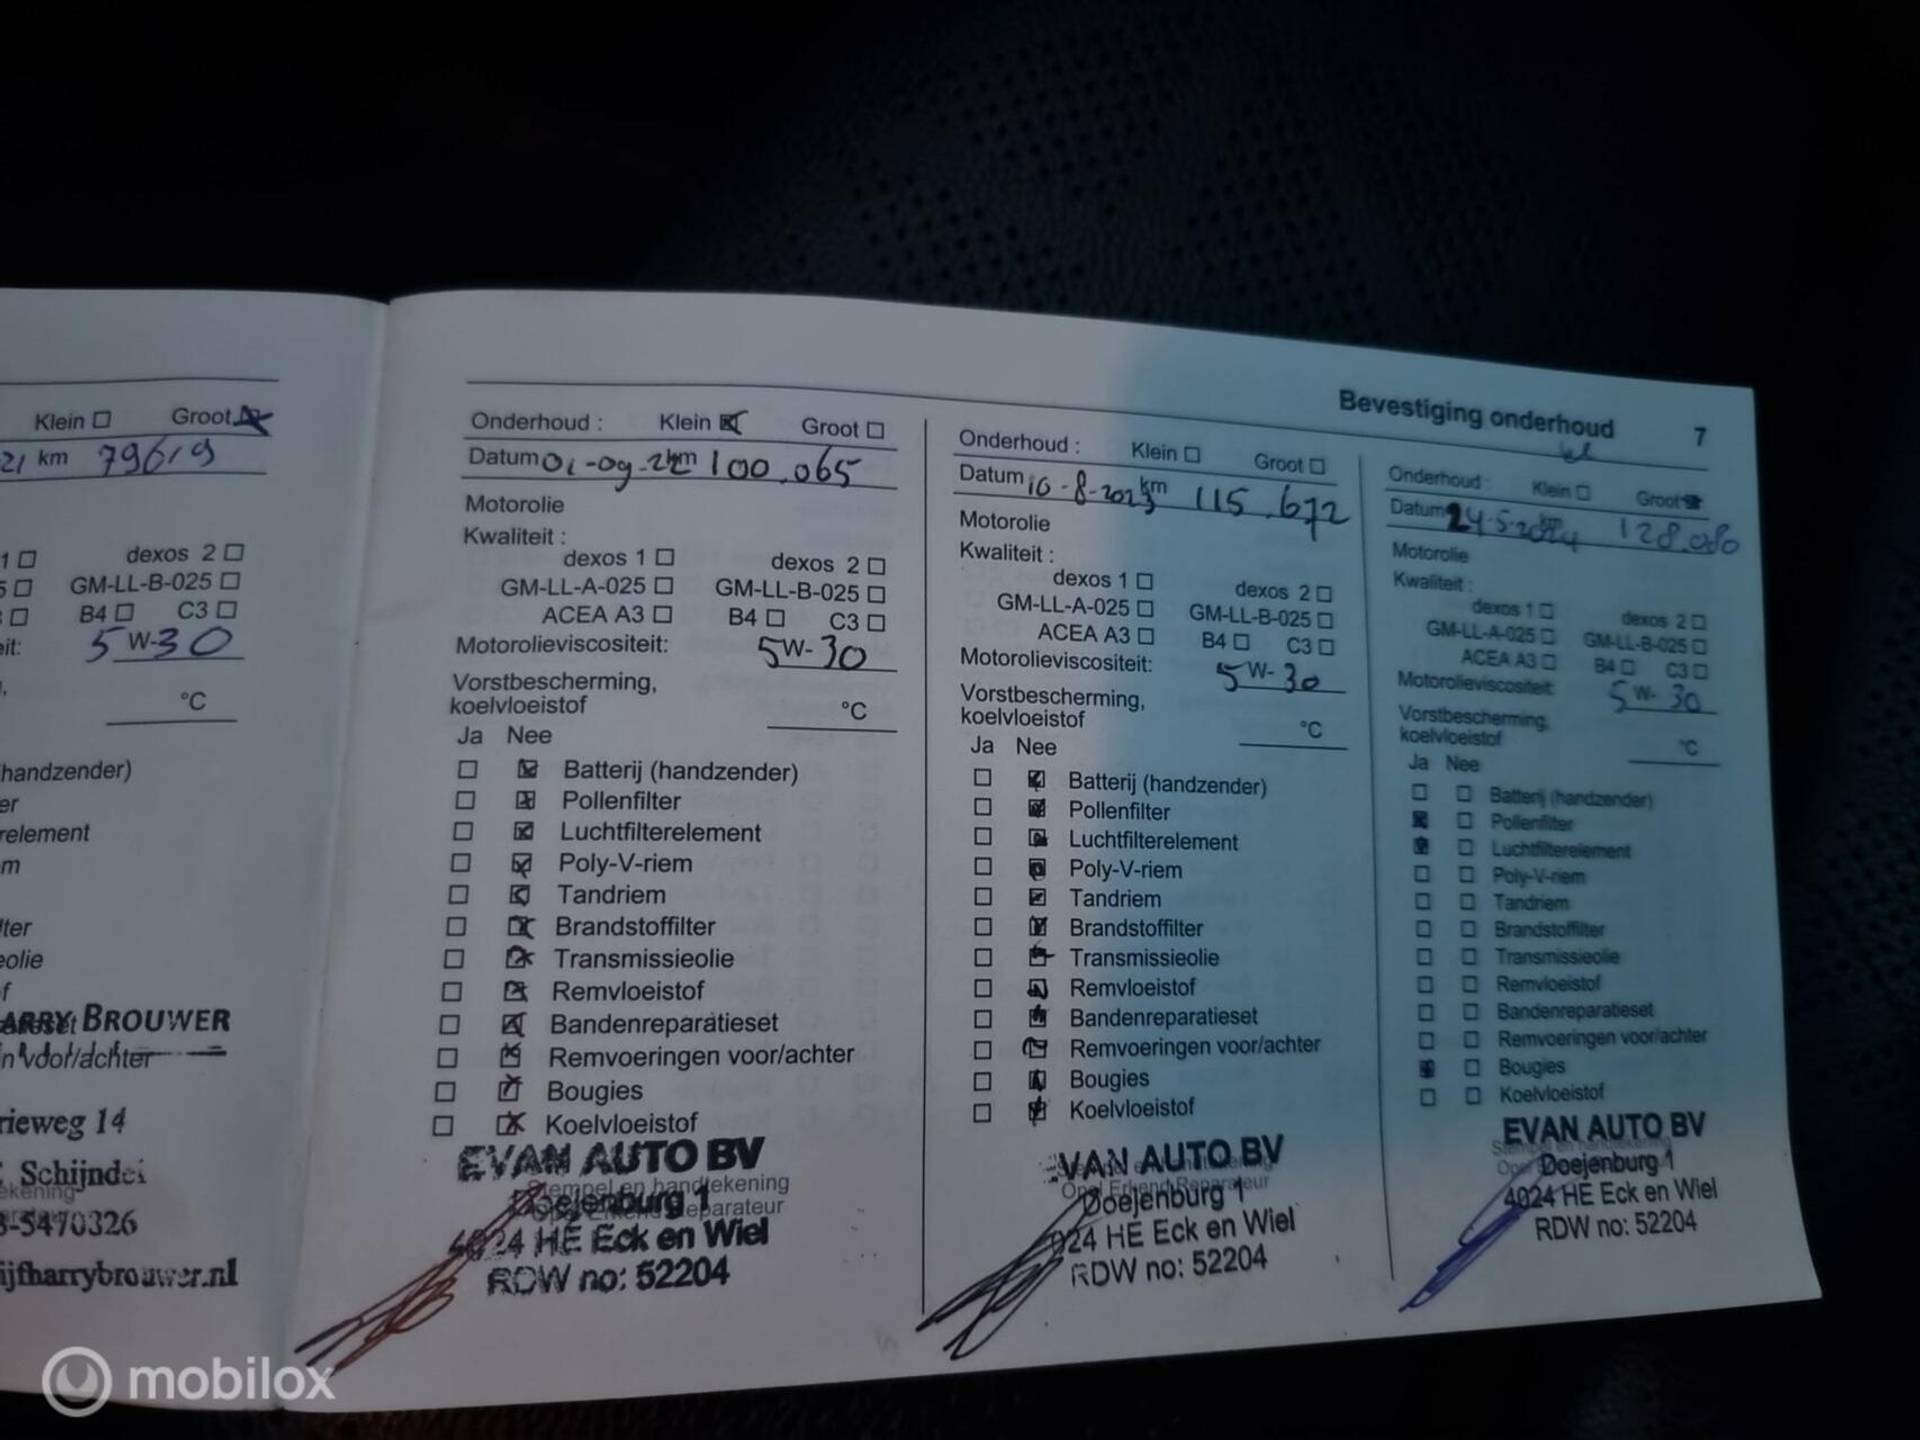 Klein Groot
21 km 79619
1 dexos 2
5 GM-LL-B-025
B4 C3
eit: 5 W-30
°C
handzender)
er
relement
m
lter
eolie
f
ARRY BROUWER
n voor/achter
rieweg 14
Schijndel
ekening
3-5470326
ijfharrybrouwer.nl
Bevestiging onderhoud 7
Onderhoud : Klein Groot
Datum 01-09-22 km 100.065
Motorolie
Kwaliteit :
dexos 1 dexos 2
GM-LL-A-025 GM-LL-B-025
ACEA A3 B4 C3
Motorolieviscositeit: 5W-30
Vorstbescherming,
koelvloeistof °C
Ja Nee
Batterij (handzender)
Pollenfilter
Luchtfilterelement
Poly-V-riem
Tandriem
Brandstoffilter
Transmissieolie
Remvloeistof
Bandenreparatieset
Remvoeringen voor/achter
Bougies
Koelvloeistof
EVAN AUTO BV
Stempel en handtekening
Doejenburg 1
Opel Erkend Reparateur
4024 HE Eck en Wiel
RDW no: 52204
Onderhoud : Klein Groot
Datum 10-8-2023 km 115.672
Motorolie
Kwaliteit :
dexos 1 dexos 2
GM-LL-A-025 GM-LL-B-025
ACEA A3 B4 C3
Motorolieviscositeit: 5W-30
Vorstbescherming,
koelvloeistof °C
Ja Nee
Batterij (handzender)
Pollenfilter
Luchtfilterelement
Poly-V-riem
Tandriem
Brandstoffilter
Transmissieolie
Remvloeistof
Bandenreparatieset
Remvoeringen voor/achter
Bougies
Koelvloeistof
VAN AUTO BV
Opel Erkend Reparateur
Doejenburg 1
024 HE Eck en Wiel
RDW no: 52204
Onderhoud : Klein Groot
Datum 24-5-2024 km 128.080
Motorolie
Kwaliteit :
dexos 1 dexos 2
GM-LL-A-025 GM-LL-B-025
ACEA A3 B4 C3
Motorolieviscositeit: 5W-30
Vorstbescherming,
koelvloeistof °C
Ja Nee
Batterij (handzender)
Pollenfilter
Luchtfilterelement
Poly-V-riem
Tandriem
Brandstoffilter
Transmissieolie
Remvloeistof
Bandenreparatieset
Remvoeringen voor/achter
Bougies
Koelvloeistof
EVAN AUTO BV
Doejenburg 1
4024 HE Eck en Wiel
RDW no: 52204
mobilox